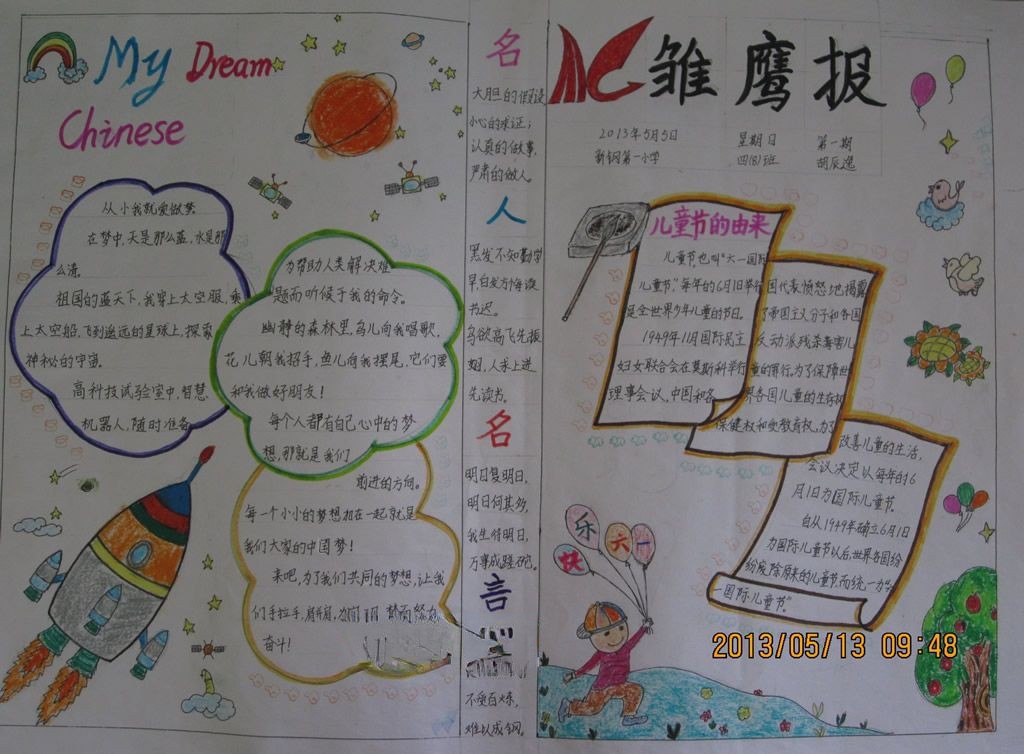 My Dream
Chinese
从小我就爱做梦
在梦中，天是那么蓝，水是那
么清。
祖国的蓝天下，我穿上太空服，乘
上太空船，飞到遥远的星球上，探索
神秘的宇宙。
高科技试验室中，智慧
机器人，随时准备
为帮助人类解决难
题而听候于我的命令。
幽静的森林里，鸟儿向我唱歌，
花儿朝我招手，鱼儿向我摆尾，它们要
和我做好朋友！
每个人都有自己心中的梦
想，那就是我们
前进的方向。
每一个小小的梦想加在一起就是
我们大家的中国梦！
来吧，为了我们共同的梦想，让我
们手拉手，肩并肩，为
奋斗！
名
大胆的假设
小心的求证；
认真的做事，
严肃的做人。
人
黑发不知勤学
早白发方悔读
书迟。
鸟欲高飞先振
翅，人求上进
先读书。
名
明日复明日，
明日何其多，
我生待明日，
万事成蹉砣。
言
不受百炼，
难以成钢。
雏鹰报
2013年5月5日
星期日
第一期
新钢第一小学
四(8)班
胡辰逸
儿童节的由来
儿童节，也叫“六一国际
儿童节”，每年的6月1日举行
是全世界少年儿童的节日。
1949年11月国际民主
妇女联合会在莫斯科举行
理事会议，中国和各
国代表愤怒地揭露
了帝国主义分子和各国
反动派残杀毒害儿
童的罪行，为了保障世
界各国儿童的生存权
保健权和受教育权，为了
改善儿童的生活，
会议决定以每年的6
月1日为国际儿童节。
自从1949年确立6月1日
为国际儿童节以后，世界各国纷
纷废除原来的儿童节，而统一为“六
一国际儿童节”。
快乐六一
2013/05/13 09:48